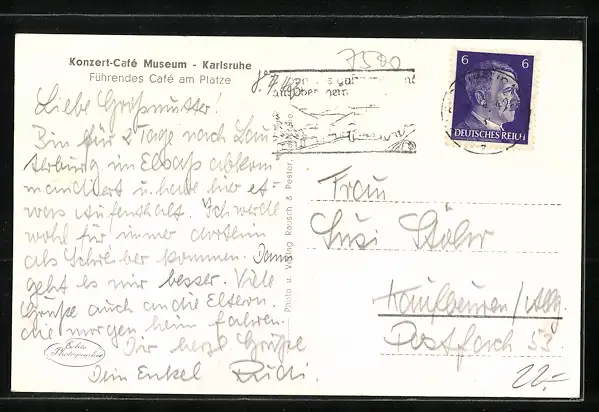 Konzert-Café Museum - Karlsruhe
Führendes Café am Platze
Liebe Großmutter!
Bin für 2 Tage nach Lau-
terburg im Elsaß abkom
mandiert u. habe hier et-
was Aufenthalt. Ich werde
wohl für immer dorthin
als Schreiber kommen. Dann
geht es mir besser. Viele
Grüße auch an die Eltern.
die morgen heim fahren.
Dir herzl Grüße
Dein Enkel Rudi.
Echte
Photographie
Photo u. Verlag Rausch & Pester,
7590
6 6
DEUTSCHES REICH
Frau
Susi Stöhr
Kaufbeuren/Allg.
Postfach 53.
22.-